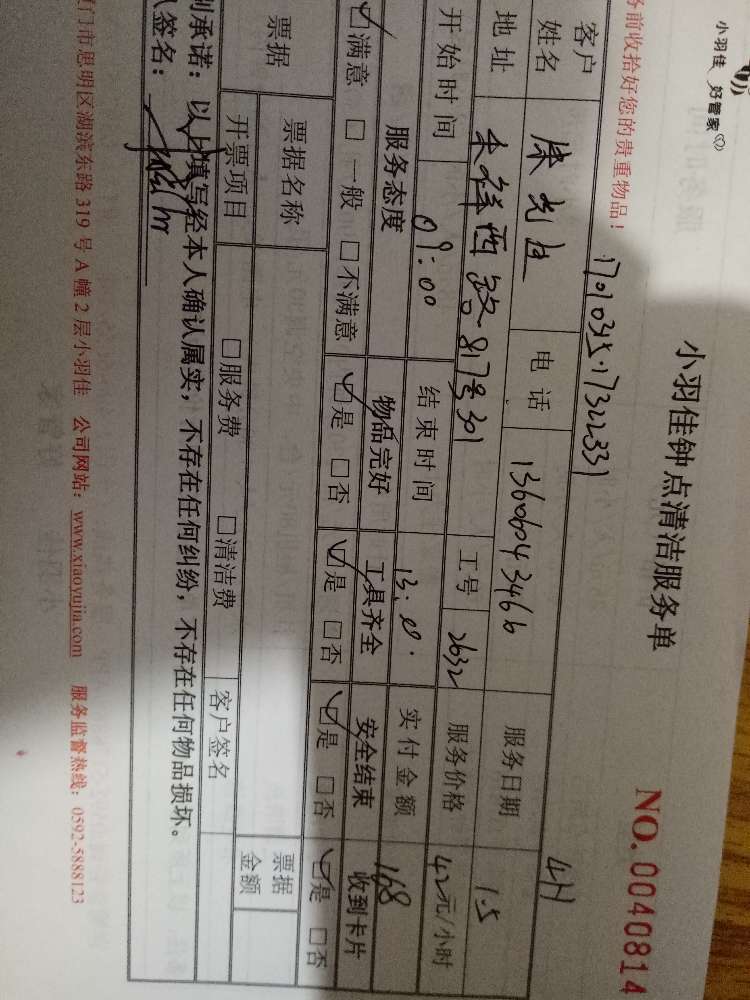 小羽佳 好管家
小羽佳钟点清洁服务单
NO. 0040814
务前收拾好您的贵重物品！
170103517322331
4H
客户姓名 先生 电话 13606043466 服务日期 1.5
地址 禾祥西路817号301 工号 2632 服务价格 42元/小时
开始时间 09:00 结束时间 13:0 实付金额 168
服务态度 物品完好 工具齐全 安全结束 收到卡片
☑满意 □一般 □不满意 ☑是 □否 ☑是 □否 ☑是 □否 ☑是 □否
票据 票据名称 票据金额
开票项目 □服务费 □清洁费 客户签名
别承诺：以上填写经本人确认属实，不存在任何纠纷，不存在任何物品损坏。
签名：
门市思明区湖滨东路 319 号 A 幢 2 层小羽佳 公司网站：www.xiaoyujia.com 服务监督热线：0592-5888123